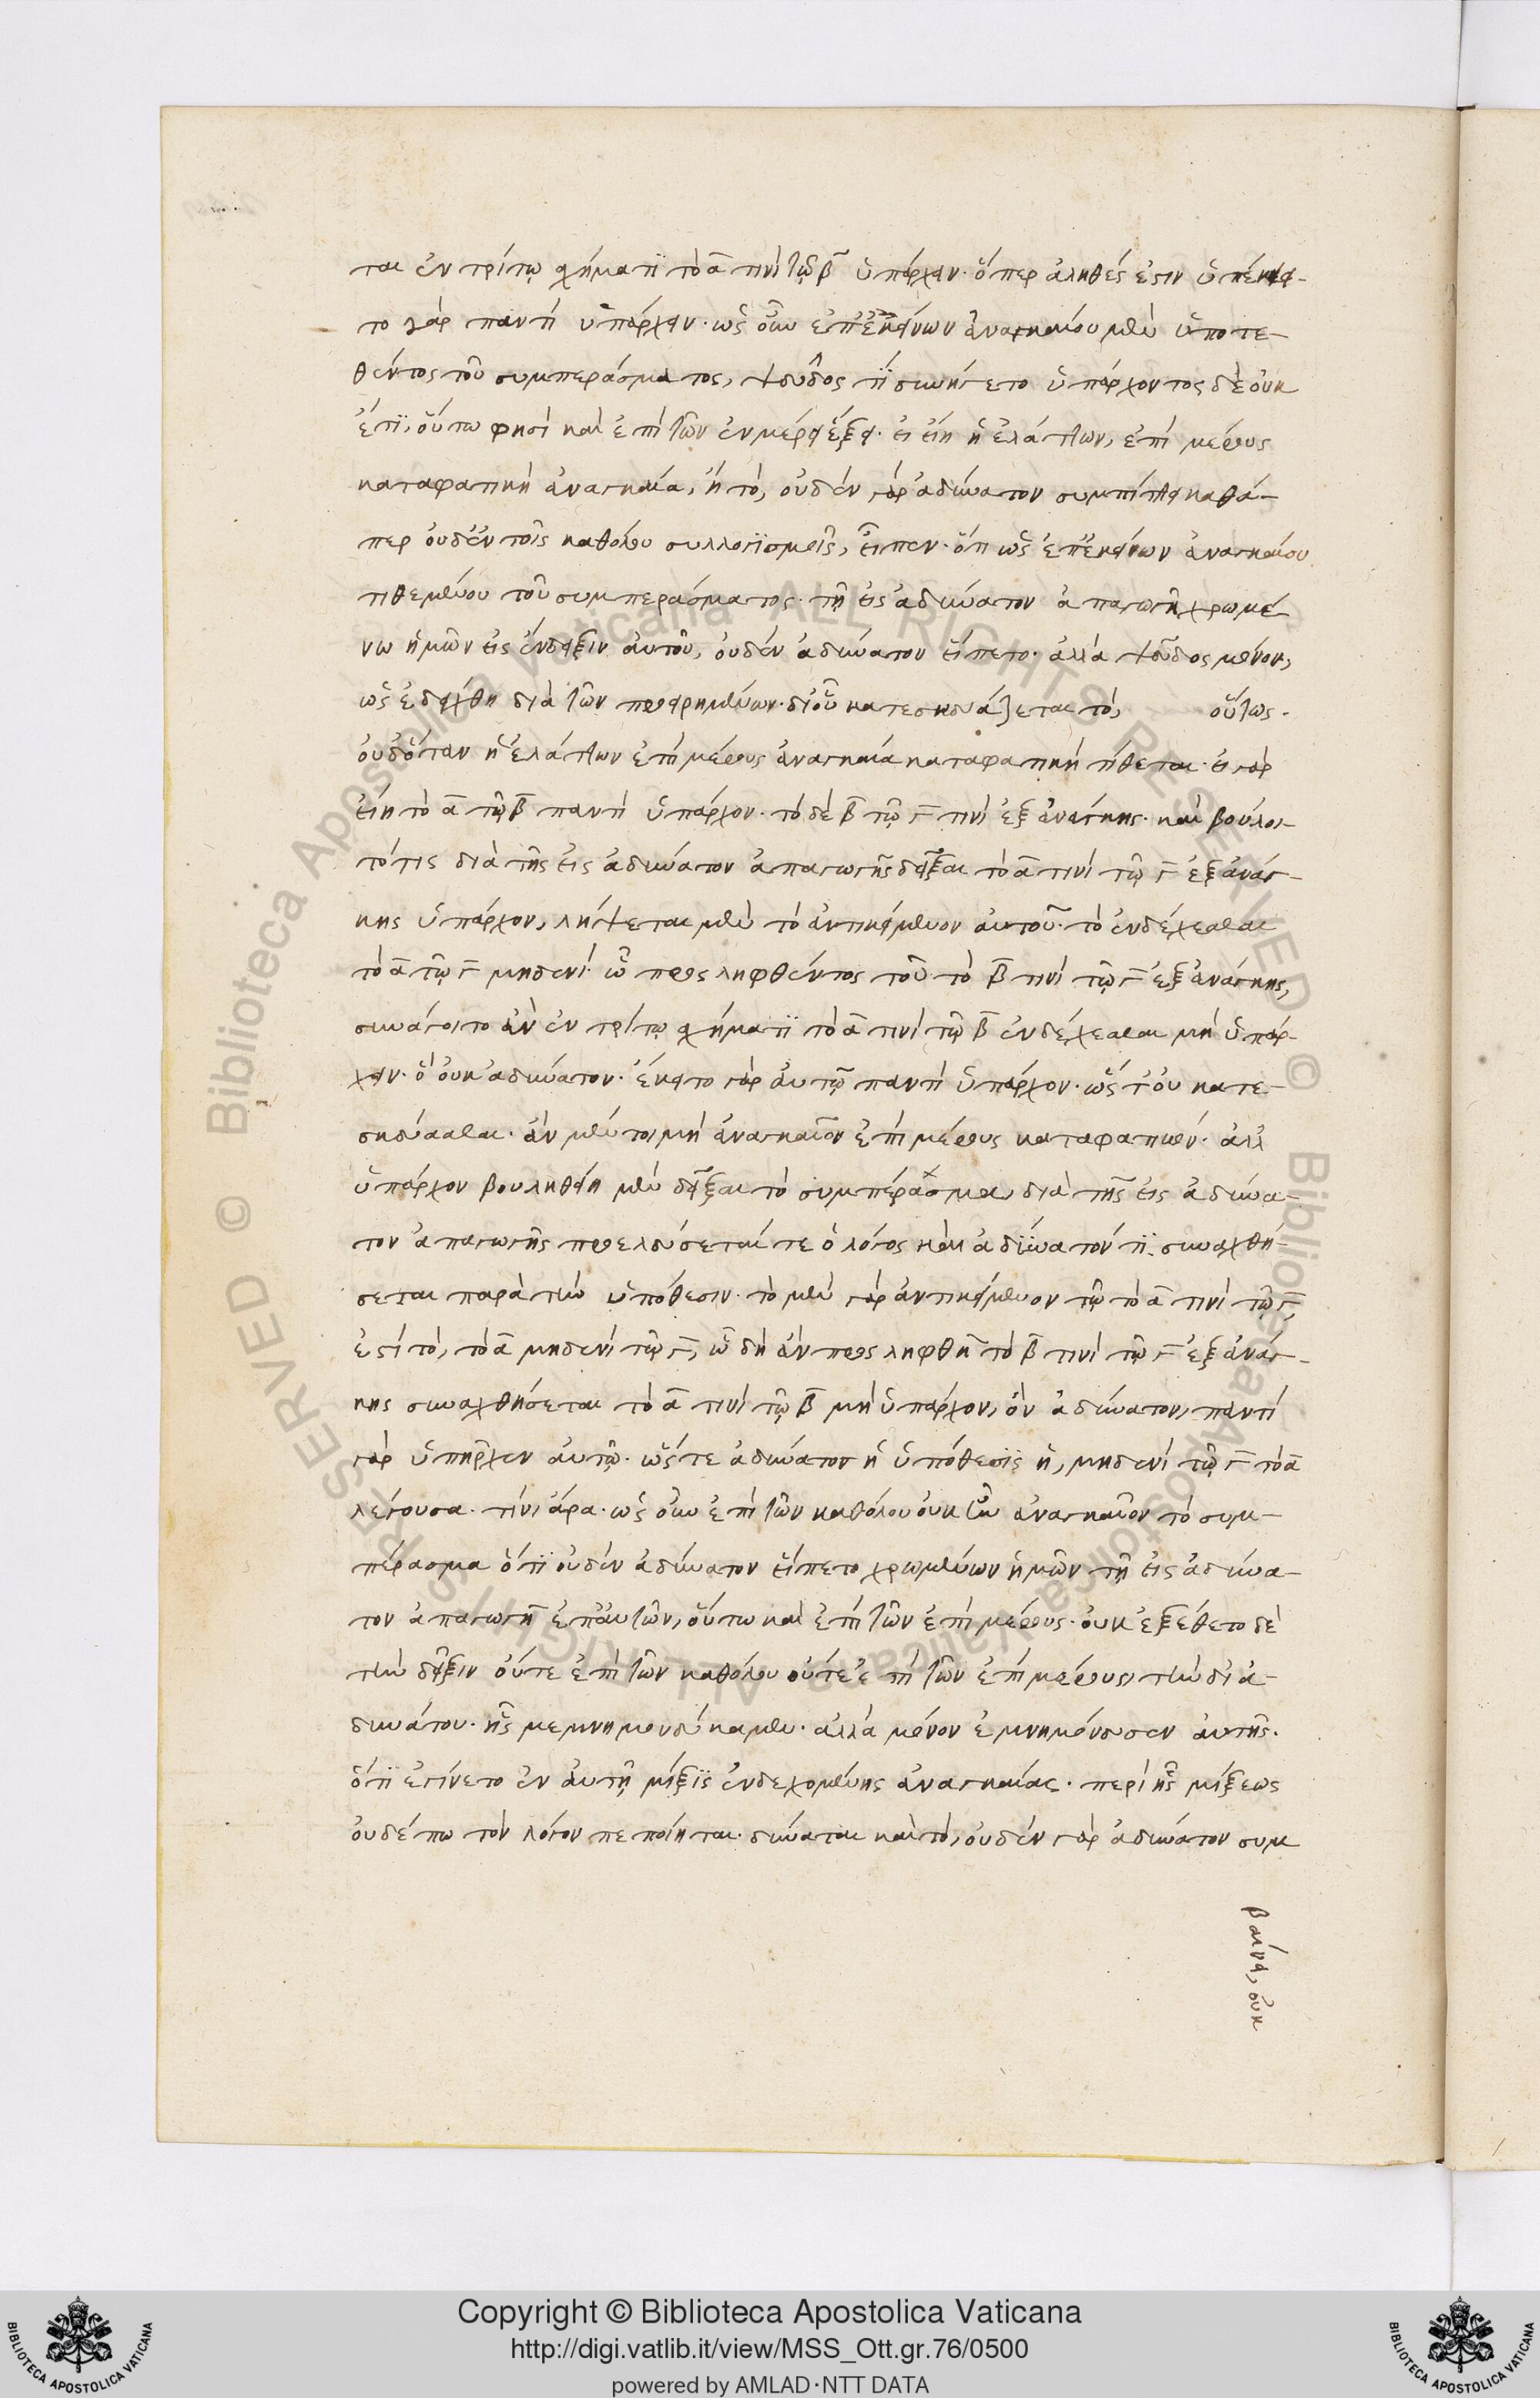 ται ἐν τρίτῳ σχήματϊ τὸ α τινὶ τῷ β ὑπάρχειν· ὅπερ ἀληθές ἐστιν ὑπέκει-
το γὰρ παντὶ ὑπάρχειν· ὡς οὖν ἐπ' ἐκείνων ἀναγκαίου μὲν ὑποτε-
θέντος τοῦ συμπεράσματος, ψεῦδος τϊ συνήγετο ὑπάρχοντος δὲ οὐκ
έτϊ, οὕτω φησὶ καὶ ἐπὶ τῶν ἐν μέρει ἕξει· εἰ εἴη ἡ ἐλάττων, ἐπὶ μέρους
καταφατικὴ ἀναγκαία, ἢ τὸ, οὐδὲν γὰρ ἀδύνατον συμπίπτει καθά-
περ οὐδ' ἐν τοῖς καθόλου συλλογϊσμοῖς, εἶπεν· ὅτι ὡς ἐπ' ἐκείνων ἀναγκαίου
τιθεμένου τοῦ συμπεράσματος· τῇ εἰς ἀδύνατον ἀπαγωγῇ χρωμέ
νω ἡμῶν εἰς ἔνδειξιν αὐτοῦ, οὐδὲν ἀδύνατον εἵπετο· ἀλλὰ ψεῦδος μόνον,
ὡς ἐδείχθη διὰ τῶν προειρημένων· δι' οὗ κατεσκευάζεται τὸ, οὕτως·
οὐδ' ὅταν ἡ ἐλάττων ἐπὶ μέρους ἀναγκαία καταφατικὴ τίθεται· εἰ γὰρ
εἴη τὸ α τῷ β παντὶ ὑπάρχον· τὸ δὲ β τῷ γ τινὶ ἐξ ἀνάγκης· καὶ βούλοι-
τό τις διὰ τῆς εἰς ἀδύνατον ἀπαγωγῆς δεῖξαι τὸ α τινὶ τῷ γ ἐξ ἀνάγ-
κης ὑπάρχον, λήψεται μὲν τὸ ἀντικείμενον αὐτοῦ· τὸ ἐνδέχεσθαι
τὸ α τῷ γ μηδενί· ᾧ προσληφθέντος τοῦ· τὸ β τινὶ τῷ γ ἐξ ἀνάγκης,
συνάγοιτο ἂν ἐν τρίτῳ σχήματϊ τὸ α τινὶ τῷ β ἐνδέχεσθαι μὴ ὑπάρ-
χειν· ὃ οὐκ ἀδύνατον· ἔκειτο γὰρ αὐτῷ παντὶ ὑπάρχον· ὥστ' οὐ κατε-
σκεύασται· ἂν μέντοι μὴ ἀναγκαῖον ἐπὶ μέρους καταφατικόν· ἀλλ
ὑπάρχον βουληθείη μὲν δεῖξαι τὸ συμπέρασμα, διὰ τῆς εἰς ἀδύνα-
τον ἀπαγωγῆς προελεύσεταί τε ὁ λόγος καὶ ἀδύνατόν τϊ συναχθή-
σεται παρὰ τὴν ὑπόθεσιν· τὸ μὲν γὰρ ἀντικείμενον τῷ τὸ α τινὶ τῷ γ,
ἐστὶ τὸ, τὸ α μηδενὶ τῷ γ, ᾧ δὴ ἂν προσληφθῇ τὸ β τινὶ τῷ γ ἐξ ἀνάγ-
κης συναχθήσεται τὸ α τινὶ τῷ β μὴ ὑπάρχον, ὂν ἀδύνατον, παντὶ
γὰρ ὑπῆρχεν αὐτῷ· ὥστε ἀδύνατον ἡ ὑπόθεσϊς ἡ, μηδενὶ τῷ γ τὸ α
λέγουσα· τινὶ ἄρα· ὡς οὖν ἐπὶ τῶν καθόλου οὐκ ἦν ἀναγκαῖον τὸ συμ-
πέρασμα ὅτϊ οὐδὲν ἀδύνατον εἵπετο χρωμένων ἡμῶν τῇ εἰς ἀδύνα-
τον ἀπαγωγῇ ἐπ' αὐτῶν, οὕτω καὶ ἐπὶ τῶν ἐπὶ μέρους· οὐκ ἐξέθετο δὲ
τὴν δεῖξιν οὔτε ἐπὶ τῶν καθόλου οὔτε ἐπὶ τῶν ἐπὶ μέρους, τὴν δι' ἀ-
δυνάτου· ἧς μεμνημονεύκαμεν· ἀλλὰ μόνον ἐμνημόνευσεν αὐτῆς·
ὅτϊ ἐγίνετο ἐν αὐτῇ μίξϊς ἐνδεχομένης ἀναγκαίας· περὶ ἧς μίξεως
οὐδέπω τὸν λόγον πεποίηται· δύναται καὶ τὸ, οὐδὲν γὰρ ἀδύνατον συμ
βαίνει, οὐκ
Copyright © Biblioteca Apostolica Vaticana
http://digi.vatlib.it/view/MSS_Ott.gr.76/0500
powered by AMLAD·NTT DATA